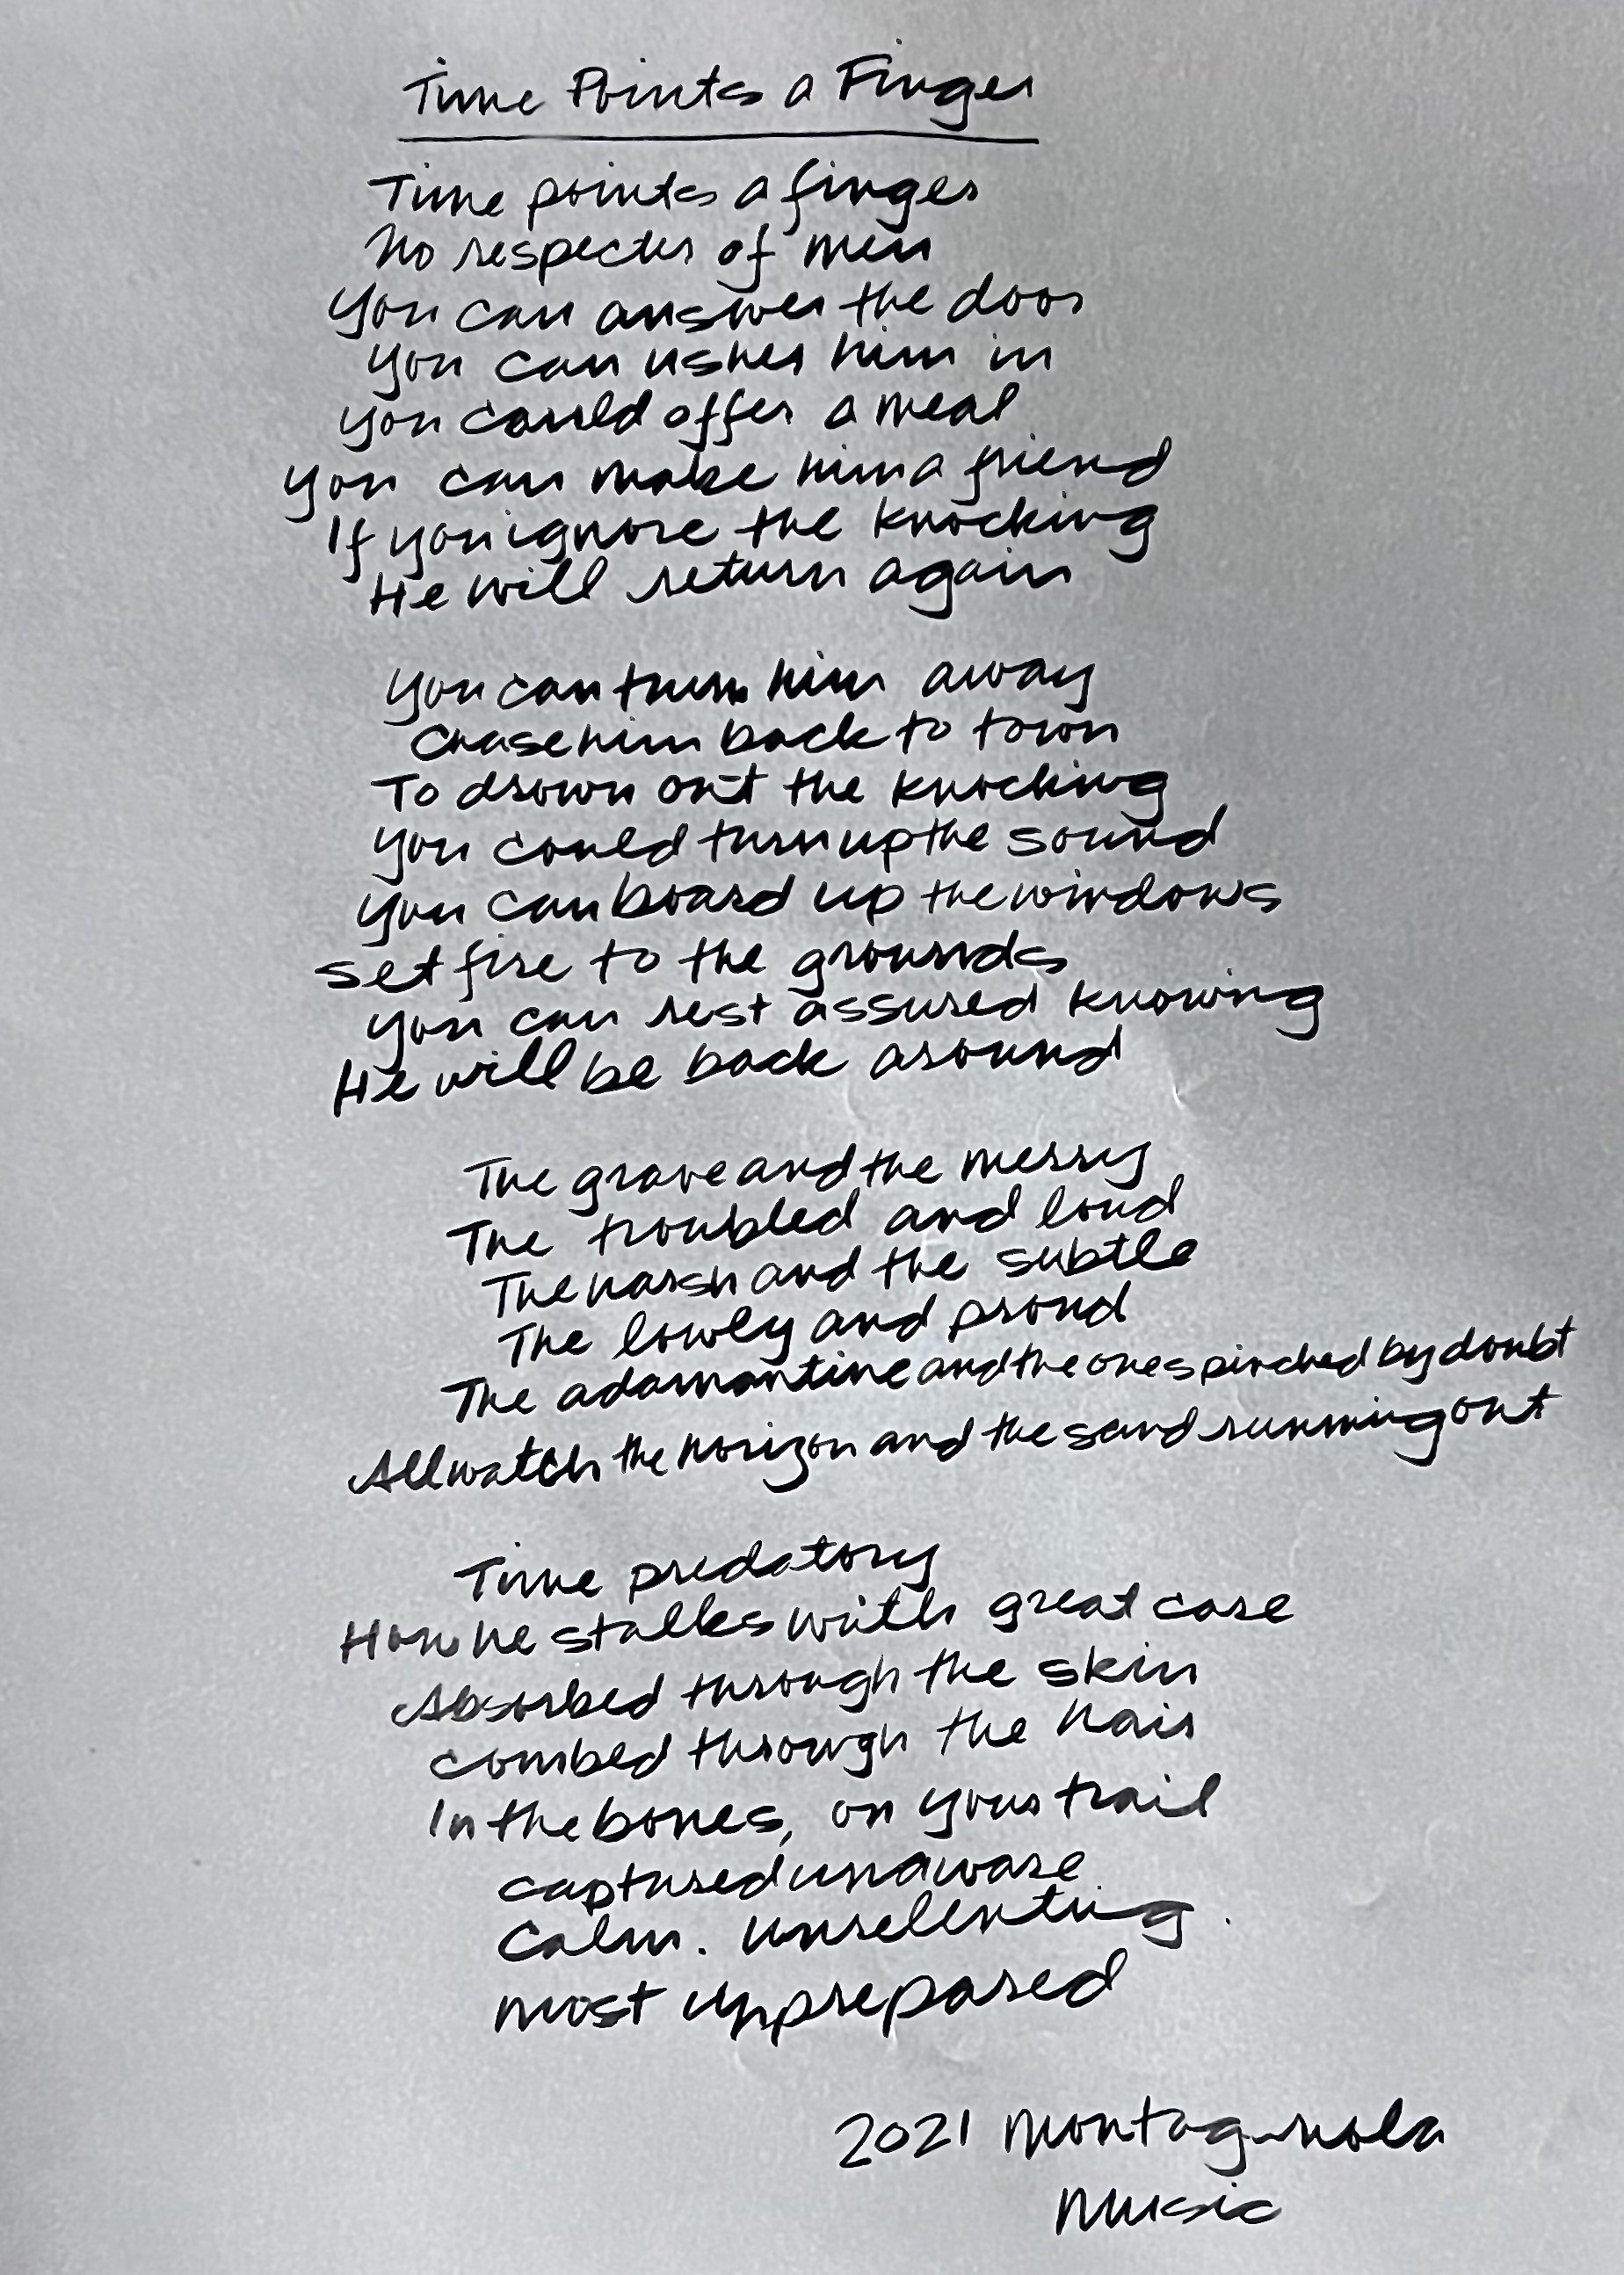 Time Points a Finger
Time points a finger
No respecter of men
You can answer the door
You can usher him in
You could offer a meal
You can make him a friend
If you ignore the knocking
He will return again
You can turn him away
Chase him back to town
To drown out the knocking
You could turn up the sound
You can board up the windows
Set fire to the grounds
You can rest assured knowing
He will be back around
The grave and the merry
The troubled and loud
The harsh and the subtle
The lowly and proud
The adamantine and the ones pinched by doubt
All watch the horizon and the sand running out
Time predatory
How he stalks with great care
Absorbed through the skin
combed through the hair
In the bones, on your trail
captured unaware
Calm. Unrelenting.
most unprepared
2021 Montagnola
Music